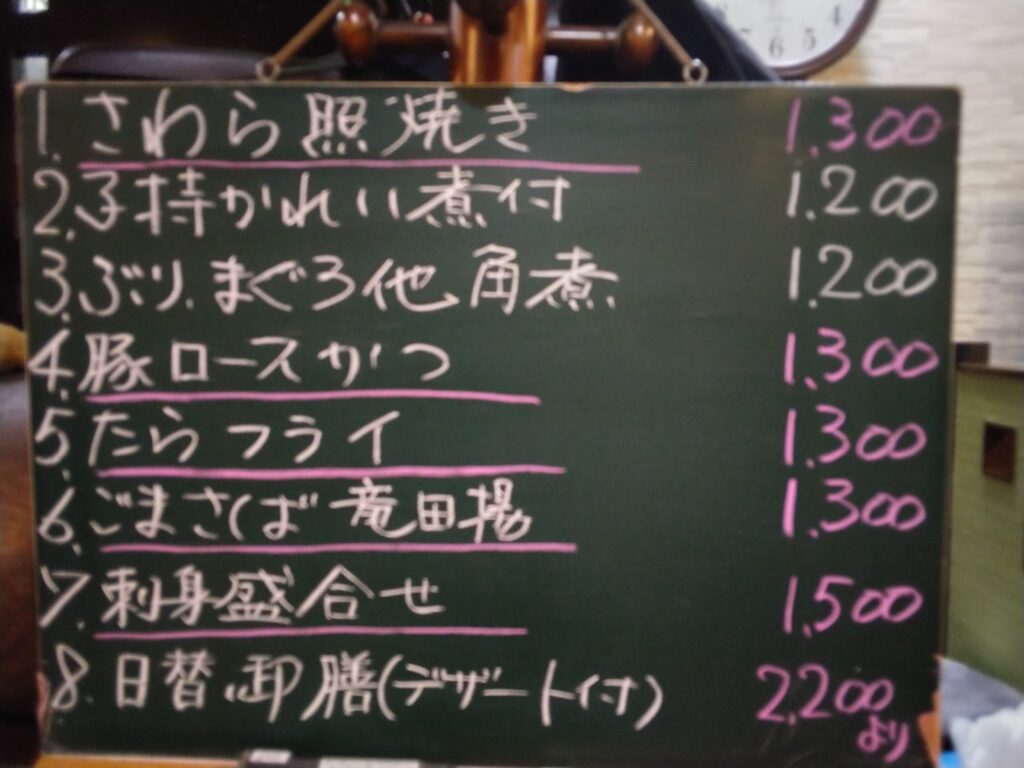 4
7 6 5
1. さわら照焼き 1,300
2. 子持かれい煮付 1,200
3. ぶり、まぐろ他角煮 1,200
4. 豚ロースかつ 1,300
5. たらフライ 1,300
6. ごまさば竜田揚 1,300
7. 刺身盛合せ 1,500
8. 日替御膳(デザート付) 2,200
より